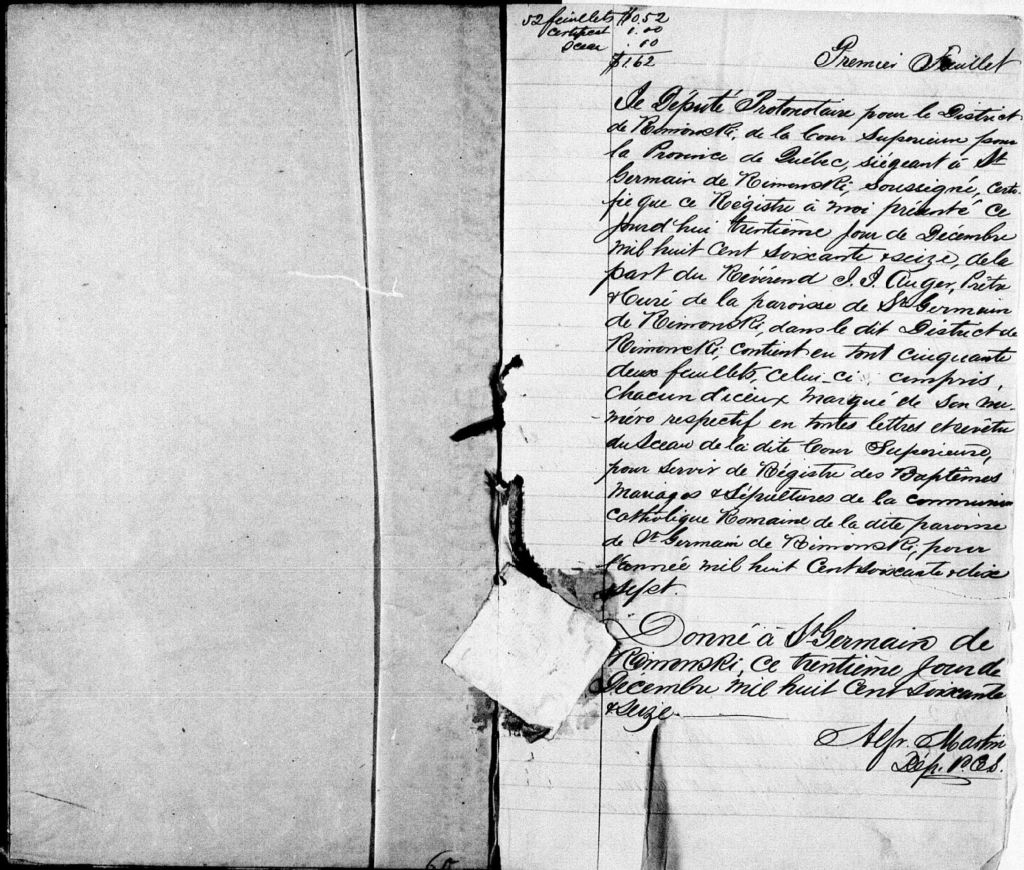 52 feuillets $0.52
Certificat 1.00
Sceau .10
$1.62
Premier Feuillet
Je Député Protonotaire pour le District
de Rimouski, de la Cour Superieure pour
la Province de Québec, siégeant à St
Germain de Rimouski, soussigné, certi-
fie que ce Régistre à moi présenté ce
jourd'hui trentième jour de Décembre
mil huit cent soixante & seize, de la
part du Révérend J. J. Auger, Prêtre
& Curé de la paroisse de St Germain
de Rimouski, dans le dit District de
Rimouski, contient en tout cinquante
deux feuillets, celui-ci compris,
chacun d'iceux marqué de son nu-
méro respectif en toutes lettres et revêtu
du Sceau de la dite Cour Superieure,
pour servir de Régistre des Baptêmes
Mariages & Sépultures de la communion
Catholique Romaine de la dite paroisse
de St Germain de Rimouski, pour
l'année mil huit Cent soixante & dix
sept.
Donné à St Germain de
Rimouski, ce trentième jour de
Décembre mil huit Cent soixante
& seize.
Alfr. Martin
Dép. P.C.S.
60